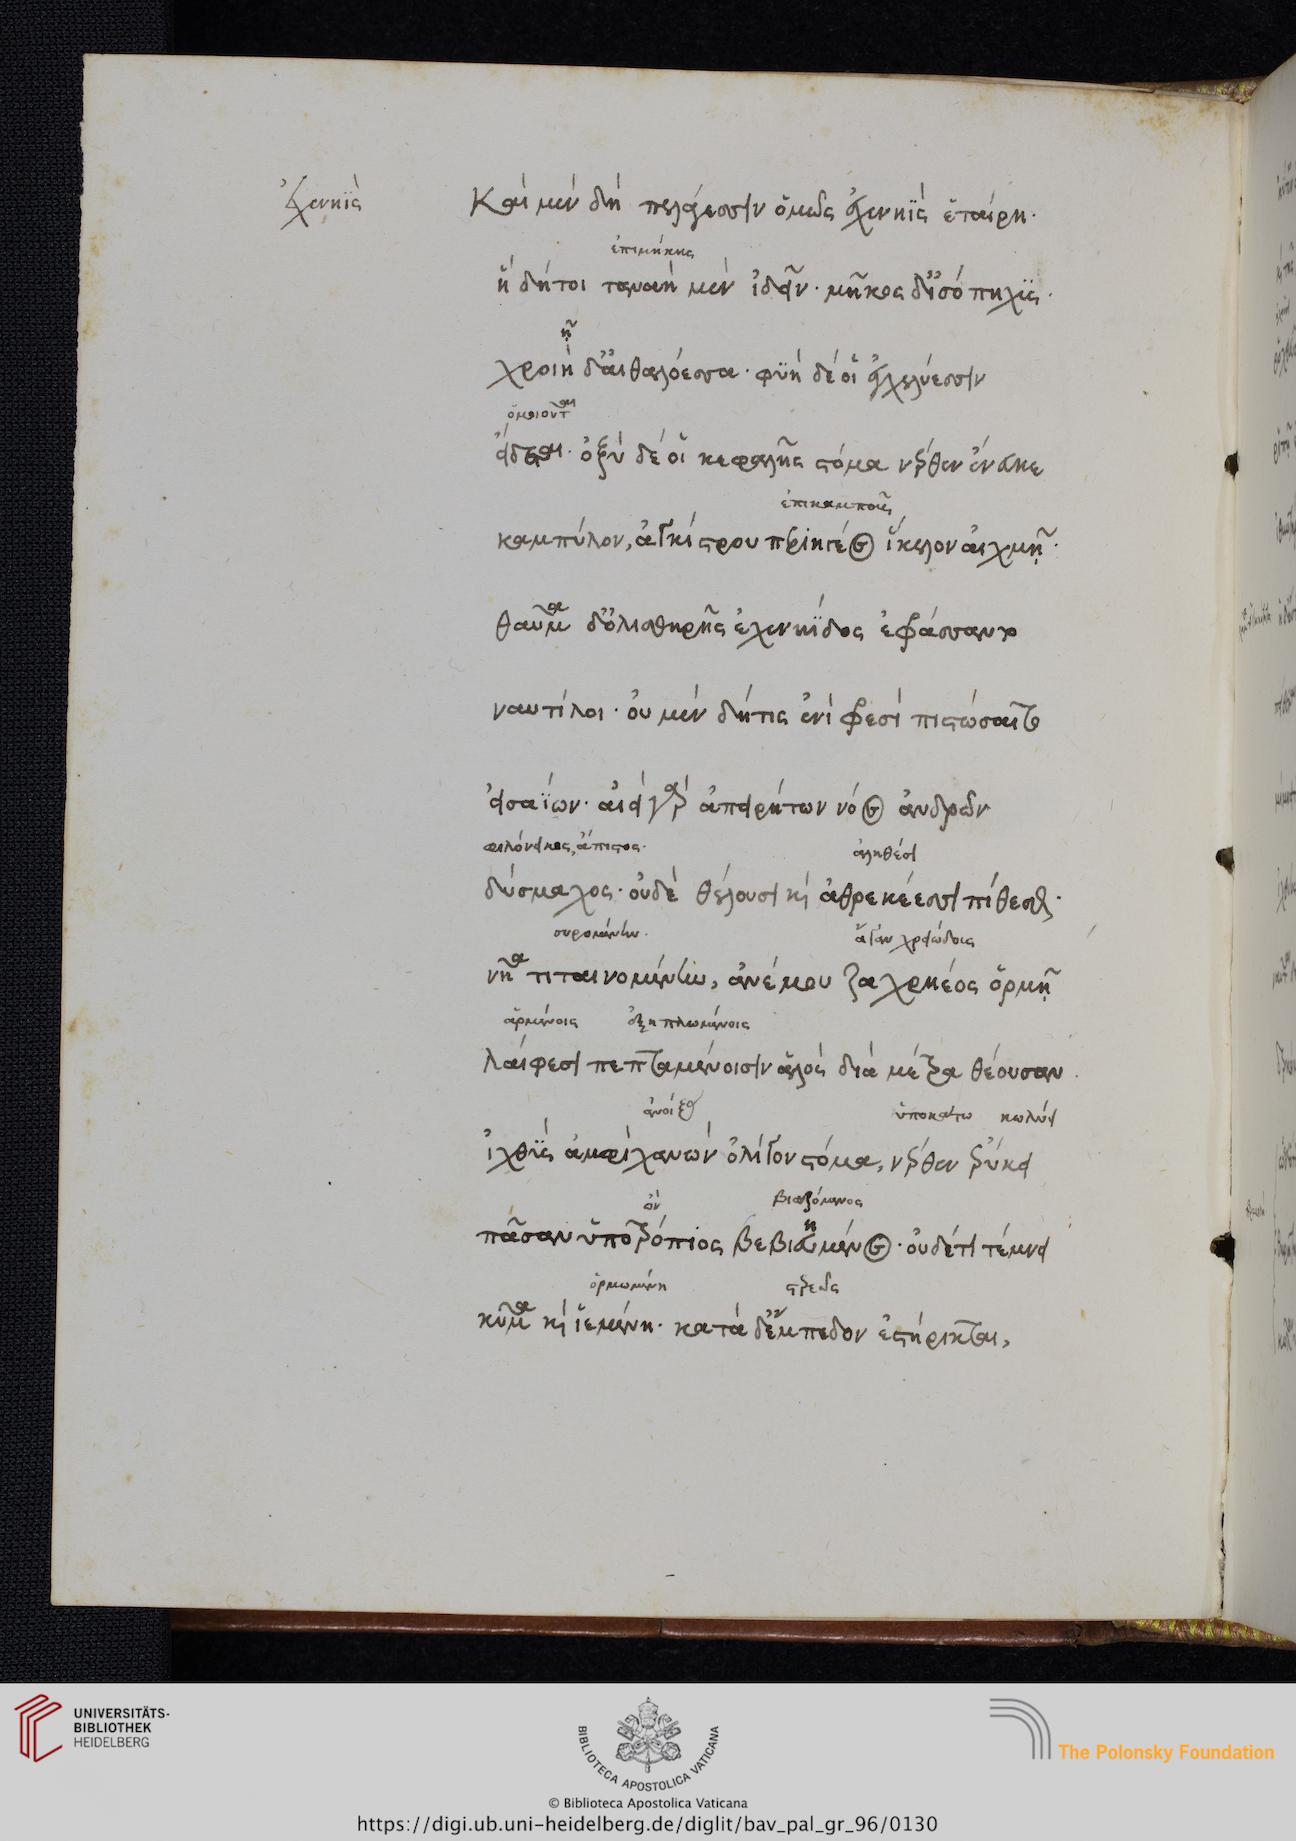 ἐχενηῒς
Καὶ μὲν δὴ πελάγεσσιν ὅμῶς ἐχενηῒς ἑταίρη·
ἐπιμήκης
ἡ δήτοι ταναὴ μὲν ἰδεῖν· μῆκος δ' ἰσόπηχϋς·
ῆ
χροιὴ δ' αἰθαλόεσσα· φϋὴ δέ οἱ ἐγχελύεσσιν
ὁμοιοῦται
εἴδεται· ὀξὺ δέ οἱ κεφαλῆς στόμα νέρθεν ἔνευκε
ἐπικαμποῦς
καμπύλον, ἀγκίστρου περιηγέος ἴκελον αἰχμῇ·
θαῦμα δ' ὀλισθηρῆς ἐχενηΐδος ἐφράσσαντο
ναυτίλοι· οὐ μὲν δήτις ἐνὶ φρεσὶ πιστώσαιτο
εἰσαΐων· αἰεὶ γὰρ ἀπειρήτων νόος ἀνδρῶν
φιλόνεικος, ἄπιστος· ἀληθέσι
δύσμαχος· οὐδὲ θέλουσι καὶ ἀθρεκέεσσι πίθεσθαι·
συρομένην· ἄγαν χρειώδους
νῆα τιταινομένην, ἀνέμου ζαχρηέος ὁρμῇ
ἀρμένοις ἐξηπλωμένοις
λαίφεσι πεπταμένοισιν ἁλὸς διὰ μέτρα θέουσαν
ἀνοίξας ὑποκάτω κωλύει
ἰχθῢς ἀμφὶχανὼν ὀλίγον στόμα, νέρθεν ἐρύκει
ὢν βιαζόμενος
πᾶσαν ὑποτρόπιος βεβιημένος· οὐδέτι τέμνει
ὁρμωμένη στερεῶς
κῦμα καὶ ἱεμένη· κατὰ δ' ἔμπεδον ἐστήρικται,
UNIVERSITÄTS-
BIBLIOTHEK
HEIDELBERG
BIBLIOTECA APOSTOLICA VATICANA
The Polonsky Foundation
© Biblioteca Apostolica Vaticana
https://digi.ub.uni-heidelberg.de/diglit/bav_pal_gr_96/0130